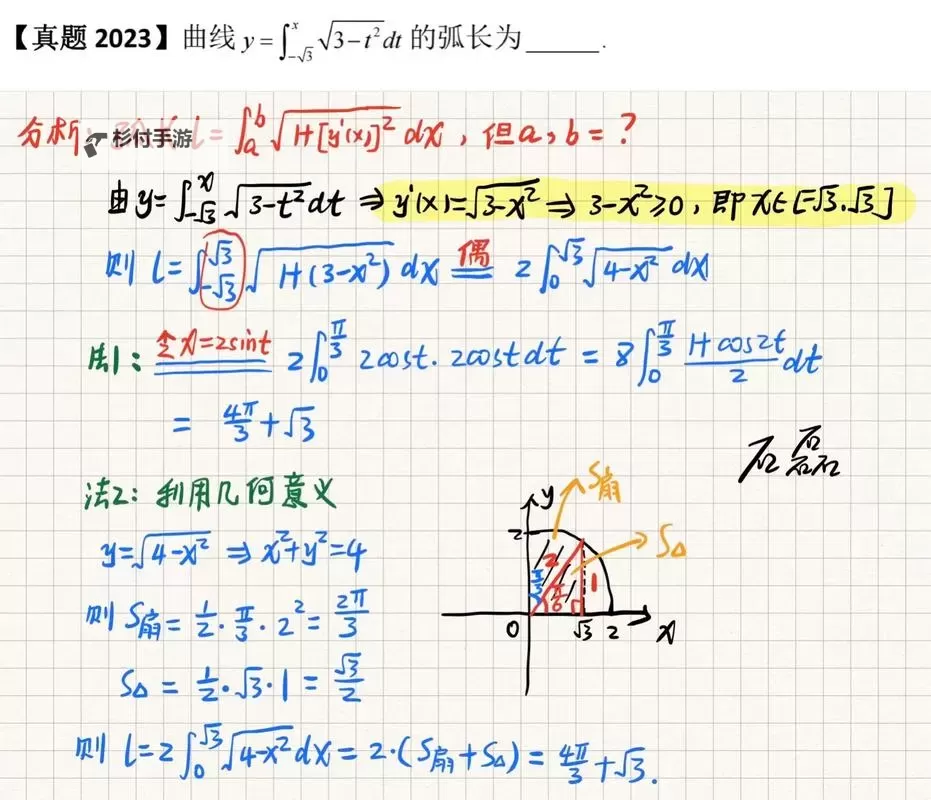 【真题 2023】曲线 y=∫_{-√3}^{x} √(3-t²) dt 的弧长为______.
分析: L=∫_a^b √(1+[y'(x)]²) dx, 但a,b=?
杉付手游
由 y=∫_{-√3}^{x} √(3-t²) dt ⇒ y'(x)=√(3-x²) ⇒ 3-x²≥0, 即 x∈[-√3,√3]
则 l=∫_{-√3}^{√3} √(1+(3-x²)) dx 偶= 2∫_0^{√3} √(4-x²) dx
法1: 令x=2sint 2∫_0^{π/3} 2cost·2cost dt = 8∫_0^{π/3} (1+cos2t)/2 dt
= 4π/3+√3
石磊
法2: 利用几何意义
y=√(4-x²) ⇒ x²+y²=4
则 S扇=1/2·π/3·2²=2π/3
S△=1/2·√3·1=√3/2
y
S扇
S△
2
2
π/3
π/6
1
0
√3
2
x
则 l=2∫_0^{√3} √(4-x²) dx=2·(S扇+S△)=4π/3+√3.